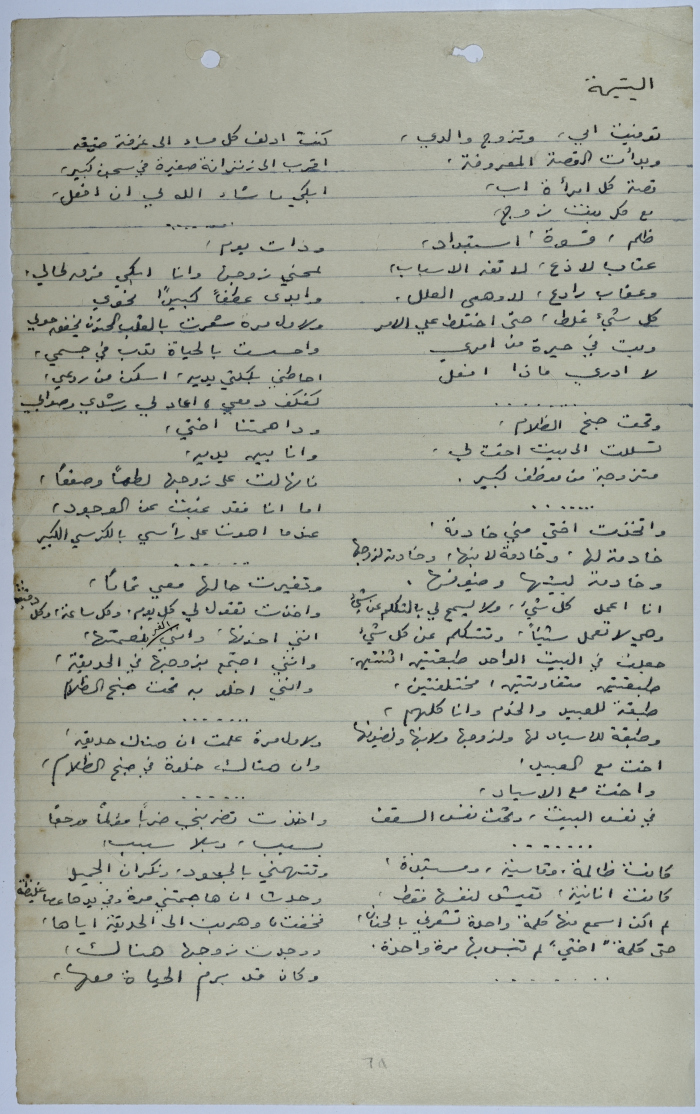 اليتيمة
توفيت امي، وتزوج والدي،
وبدأت القصة المعروفة،
قصة كل امرأة اب،
مع كل بنت زوج،
ظلم، قسوة، استبداد،
عتاب لاذع، لاتفه الاسباب،
وعقاب رادع، لاوهى العلل،
كل شيء غلط، حتى اختلط علي الامر
وبت في حيرة من امري
لا ادري ماذا افعل
........
وتحت جنح الظلام،
تسللت الى بيت اخت لي،
متزوجة من موظف كبير.
.......
واتخذت اختي مني خادمة،
خادمة لها، وخادمة لابنها، وخادمة لزوجها
وخادمة لبيتها وضيوفها.
انا اعمل كل شيء، ولا يسمح لي بالتكلم عن شيء
وهي لا تعمل شيئاً، وتتكلم عن كل شيء
جعلت في البيت الواحد طبقتين اثنتين،
طبقتين متفاوتتين، مختلفتين،
طبقة للعبيد والخدم وانا كلهم،
وطبقة للاسياد لها ولزوجها ولابنها ولضيوفها
اخت مع العبيد،
واخت مع الاسياد،
في نفس البيت، وتحت نفس السقف
........
كانت ظالمة، وقاسية، ومستبدة،
كانت انانية، تعيش لنفسها فقط،
لم اكن اسمع منها كلمة واحدة تشعرني بالحنان،
حتى كلمة "اختي" لم تنبس بها مرة واحدة.
.........
كنت ادلف كل مساء الى غرفة ضيقة
اقرب الى زنزانة صغيرة في سجن كبير،
ابكي ما شاء الله لي ان افعل،
.......
وذات يوم،
لمحني زوجها وانا ابكي فرق لحالي،
وابدى عطفاً كبيراً نحوي
ولاول مرة شعرت بالقلب الحنون يخفق حولي
واحسست بالحياة تدب في جسمي،
احاطني بكلتي يديه، اسكن من روعي،
كفكف دمعي، اعاد لي رشدي وصوابي
وداهمتنا اختي،
وانا بين يديه،
فانهالت على زوجها لطماً وصفعاً،
اما انا فقد غبت عن الوجود،
عندما اهوت على رأسي بالكرسي الكبير
.......
وتغيرت حالها معي تماماً،
واخذت تقول لي كل يوم، وكل ساعة، وكل دقيقة
انني اخونها، وانني انغص نعمتها،
وانني اجتمع بزوجها في الحديقة،
وانني اخلو به تحت جنح الظلام
.......
ولاول مرة علمت ان هناك حديقة،
وان هناك، خلوة في جنح الظلام،
......
واخذت تضربني ضرباً مؤلماً موجعاً
بسبب، وبلا سبب،
وتتهمني بالجحود، ونكران الجميل
وحدث ان هاجمتني مرة وفي يدها عصا غليظة
فخفت، وهربت الى الحديقة اياها،
ووجدت زوجها هناك،
وكان قد برم الحياة معها،
٦٨